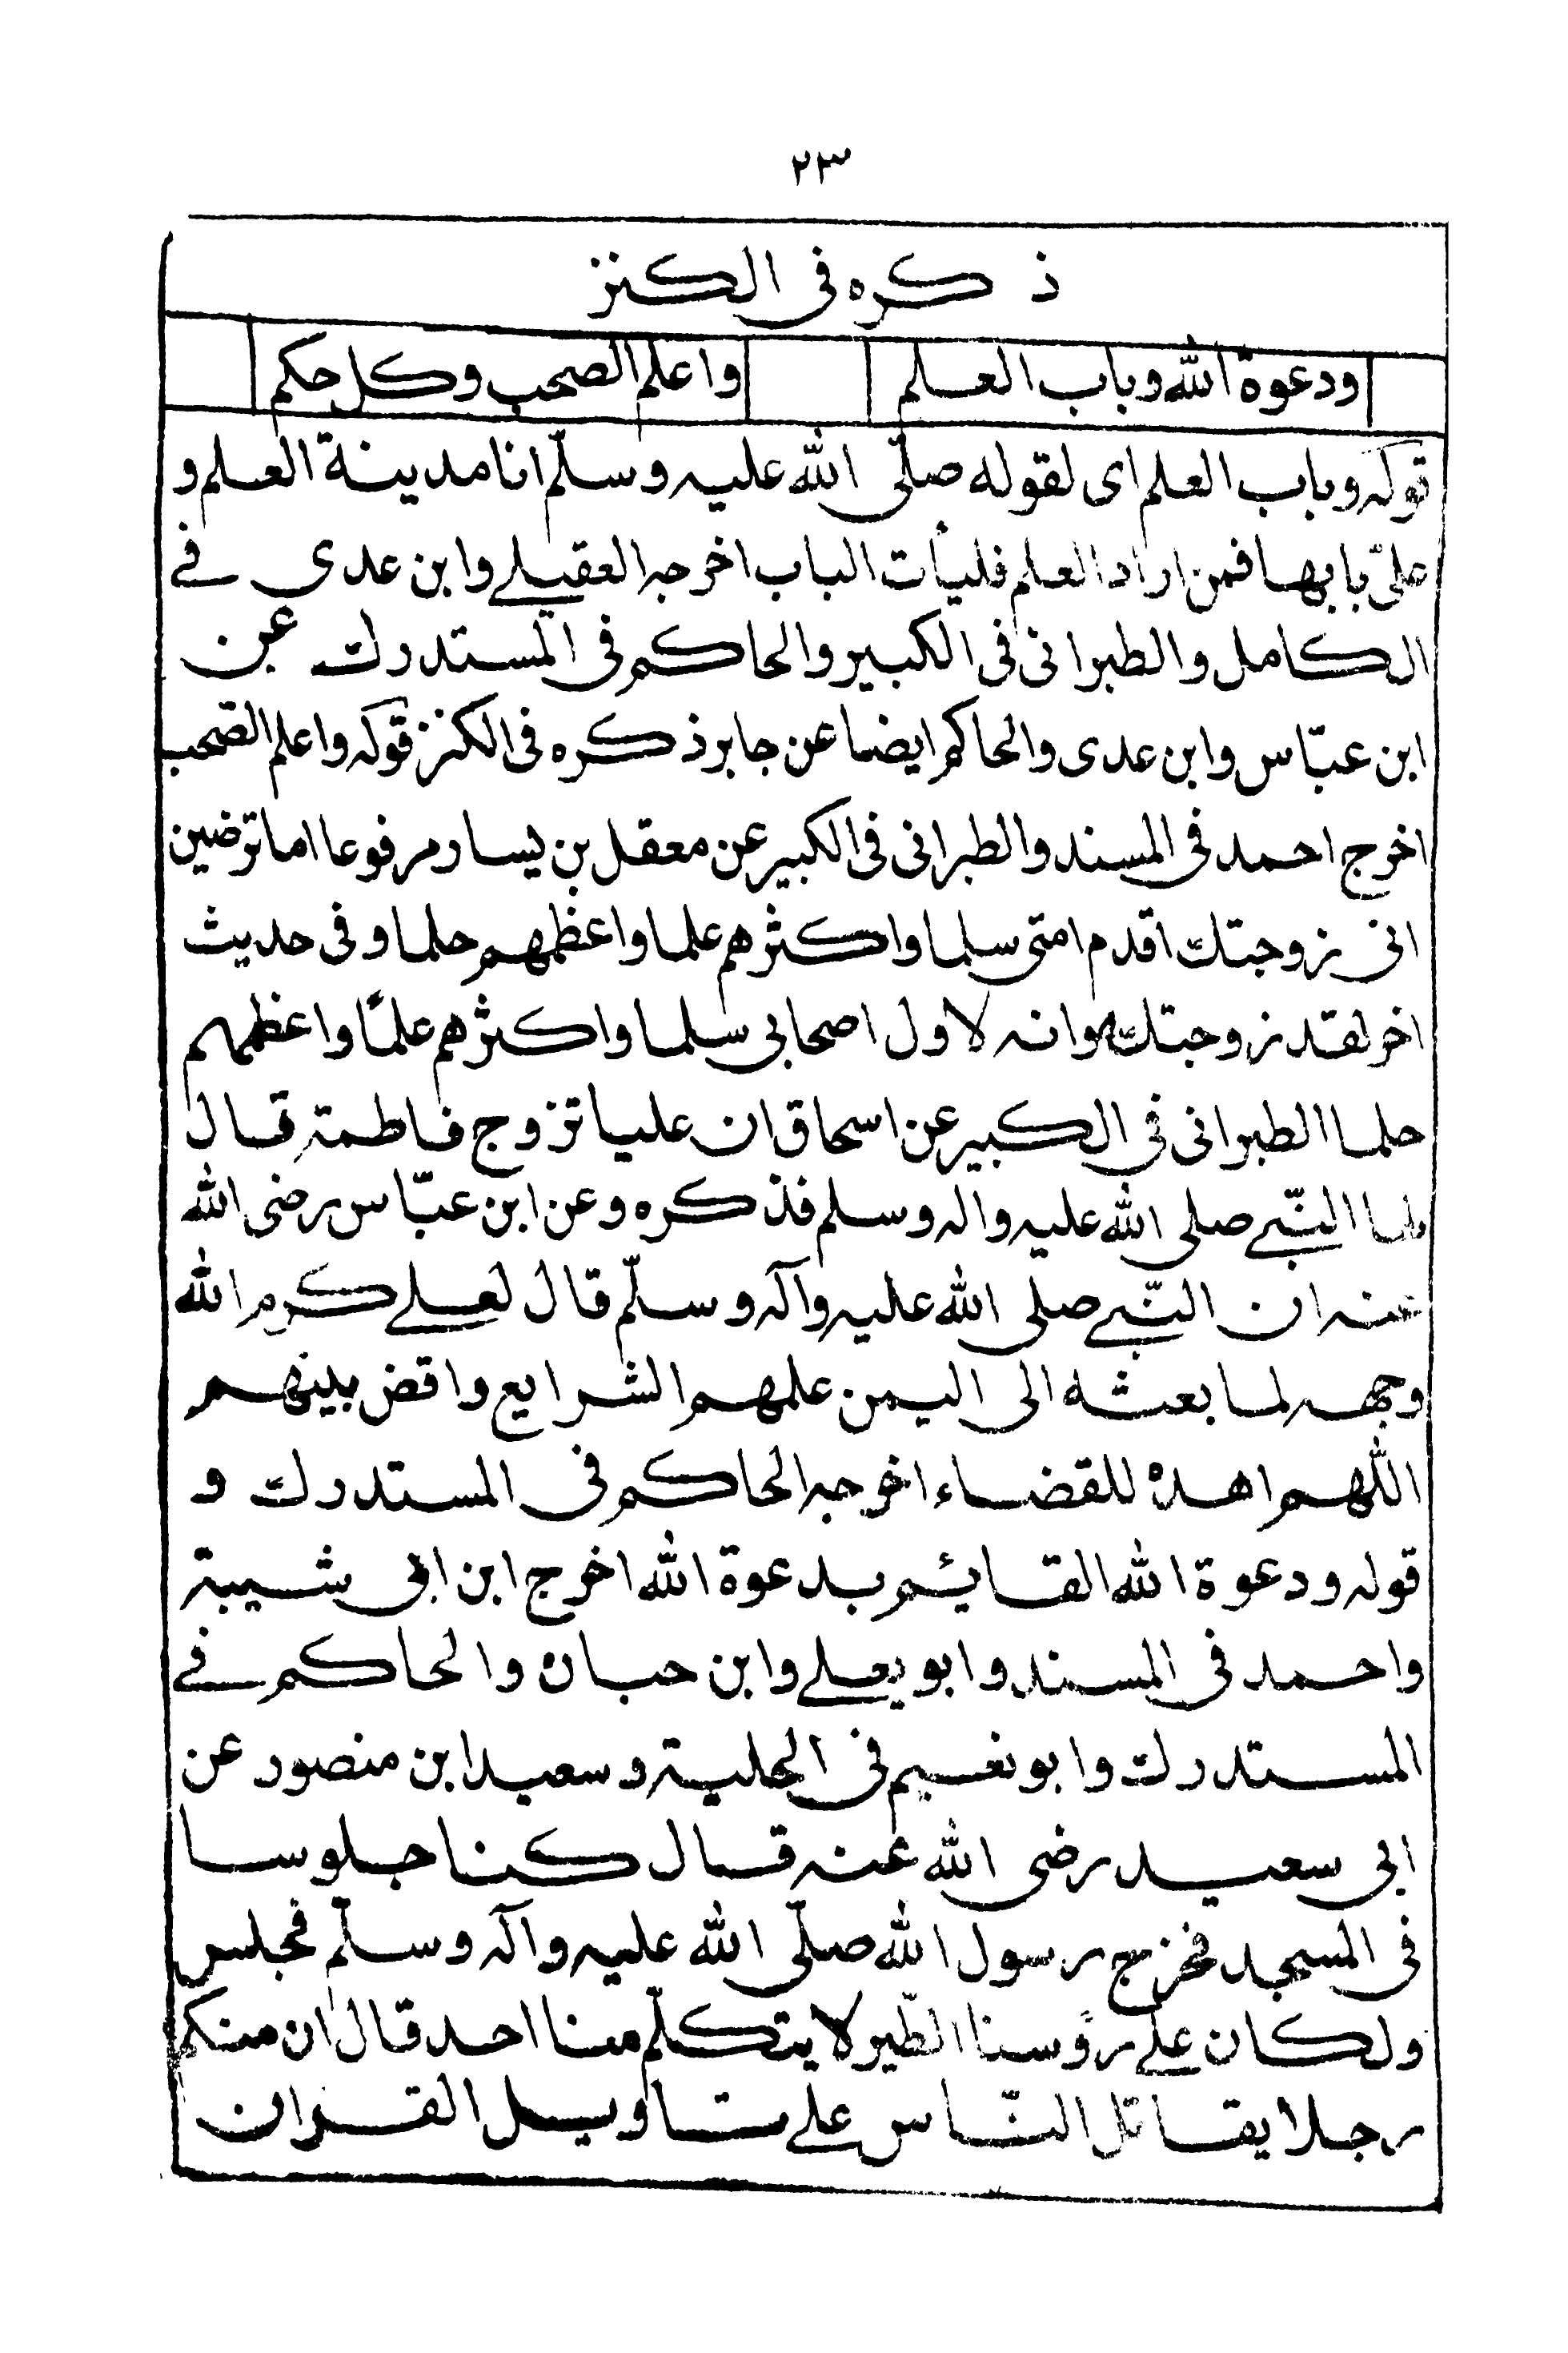 ٢٣
ذكره فى الكنز
ودعوة الله وباب العلم واعلم الصحب وكل حكم
قوله وباب العلم اى لقوله صلّى الله عليه وسلّم انا مدينة العلم و
علىّ بابها فمن اراد العلم فليأت الباب اخرجه العقيلے وابن عدى فے
الكامل والطبرانى فى الكبير والحاكم فى المستدرك عن
ابن عبّاس وابن عدى والحاكم ايضا عن جابر ذكره فى الكنز قوله واعلم الصحب
اخرج احمد فى المسند والطبرانى فى الكبير عن معقل بن يسار مرفوعا اما ترضين
انى زوجتك اقدم امتى سلما واكثرهم علما واعظمهم حلما وفى حديث
اخر لقد زوجتك وانه لاول اصحابى سلما واكثرهم علمًا واعظمهم
حلما الطبرانى فى الكبير عن اسحاق ان عليا تزوج فاطمة قال
لها النّبے صلى الله عليه واله وسلم فذكره وعن ابن عبّاس رضى الله
عنه ان النّبے صلى الله عليه وآله وسلّم قال لعلے كرم الله
وجهه لما بعثه الى اليمن علمهم الشرايع واقض بينهم
اللهم اهده للقضاء اخرجه الحاكم فى المستدرك و
قوله ودعوة الله القائم بدعوة الله اخرج ابن ابى شيبة
واحمد فى المسند وابو يعلے وابن حبان والحاكم فے
المستدرك وابو نعيم فى الحلية وسعيد ابن منصور عن
ابى سعيد رضى الله عنه قال كنا جلوسا
فى المسجد فخرج رسول الله صلّى الله عليه وآله وسلّم فجلس
ولكان علے رؤسنا الطّير لا يتكلّم منا احد قال ان منكم
رجلا يقاتل النّاس علے تاويل القران